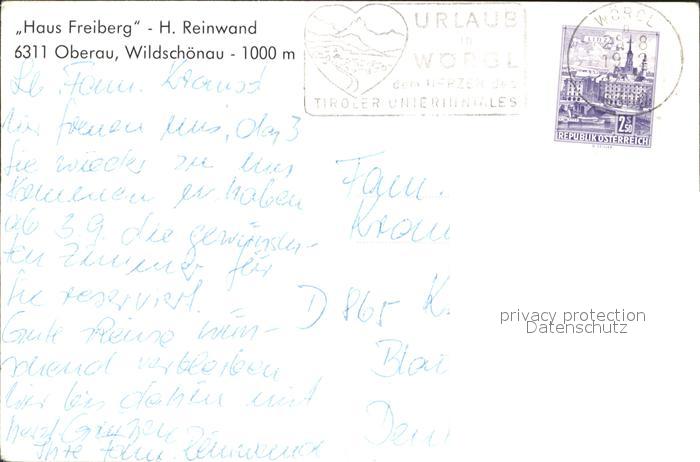 „Haus Freiberg“ - H. Reinwand
6311 Oberau, Wildschönau - 1000 m
URLAUB
in
WÖRGL
dem HERZEN des
TIROLER UNTERINNTALES
WÖRGL
LINZ
2.50
REPUBLIK ÖSTERREICH
Lb. Fam.
Wir freuen uns, daß
Sie wieder zu uns
kommen wir haben
ab 3.9. die gewünsch-
ten Zimmer für
Sie reserviert.
Gute Reise wün-
schend verbleiben
wir bis dahin mit
herzl. Grüßen
Ihre Fam. Reinwand
Fam.
D 865 K
privacy protection
Datenschutz